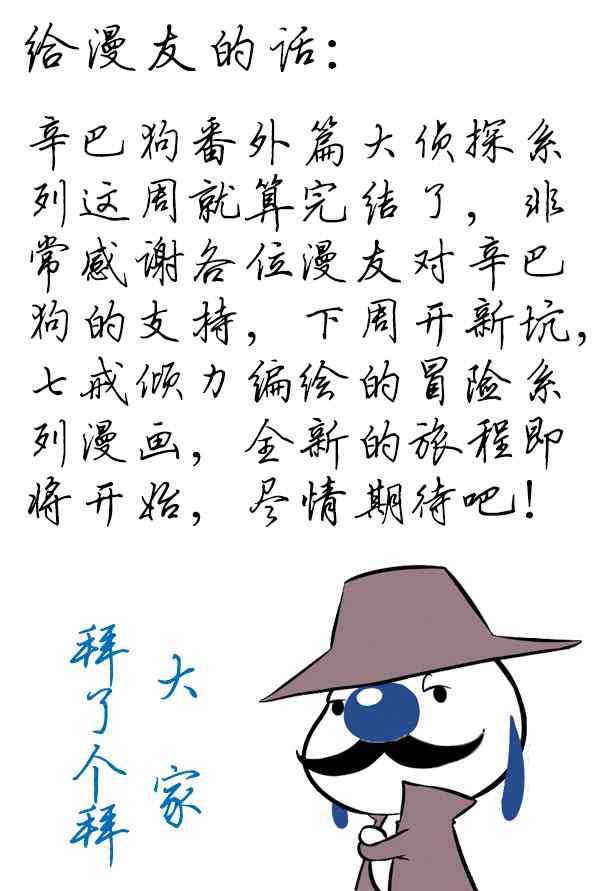 给漫友的话：
辛巴狗番外篇大侦探系
列这周就算完结了，非
常感谢各位漫友对辛巴
狗的支持，下周开新坑，
七戒倾力编绘的冒险系
列漫画，全新的旅程即
将开始，尽情期待吧！
大家
拜了个拜